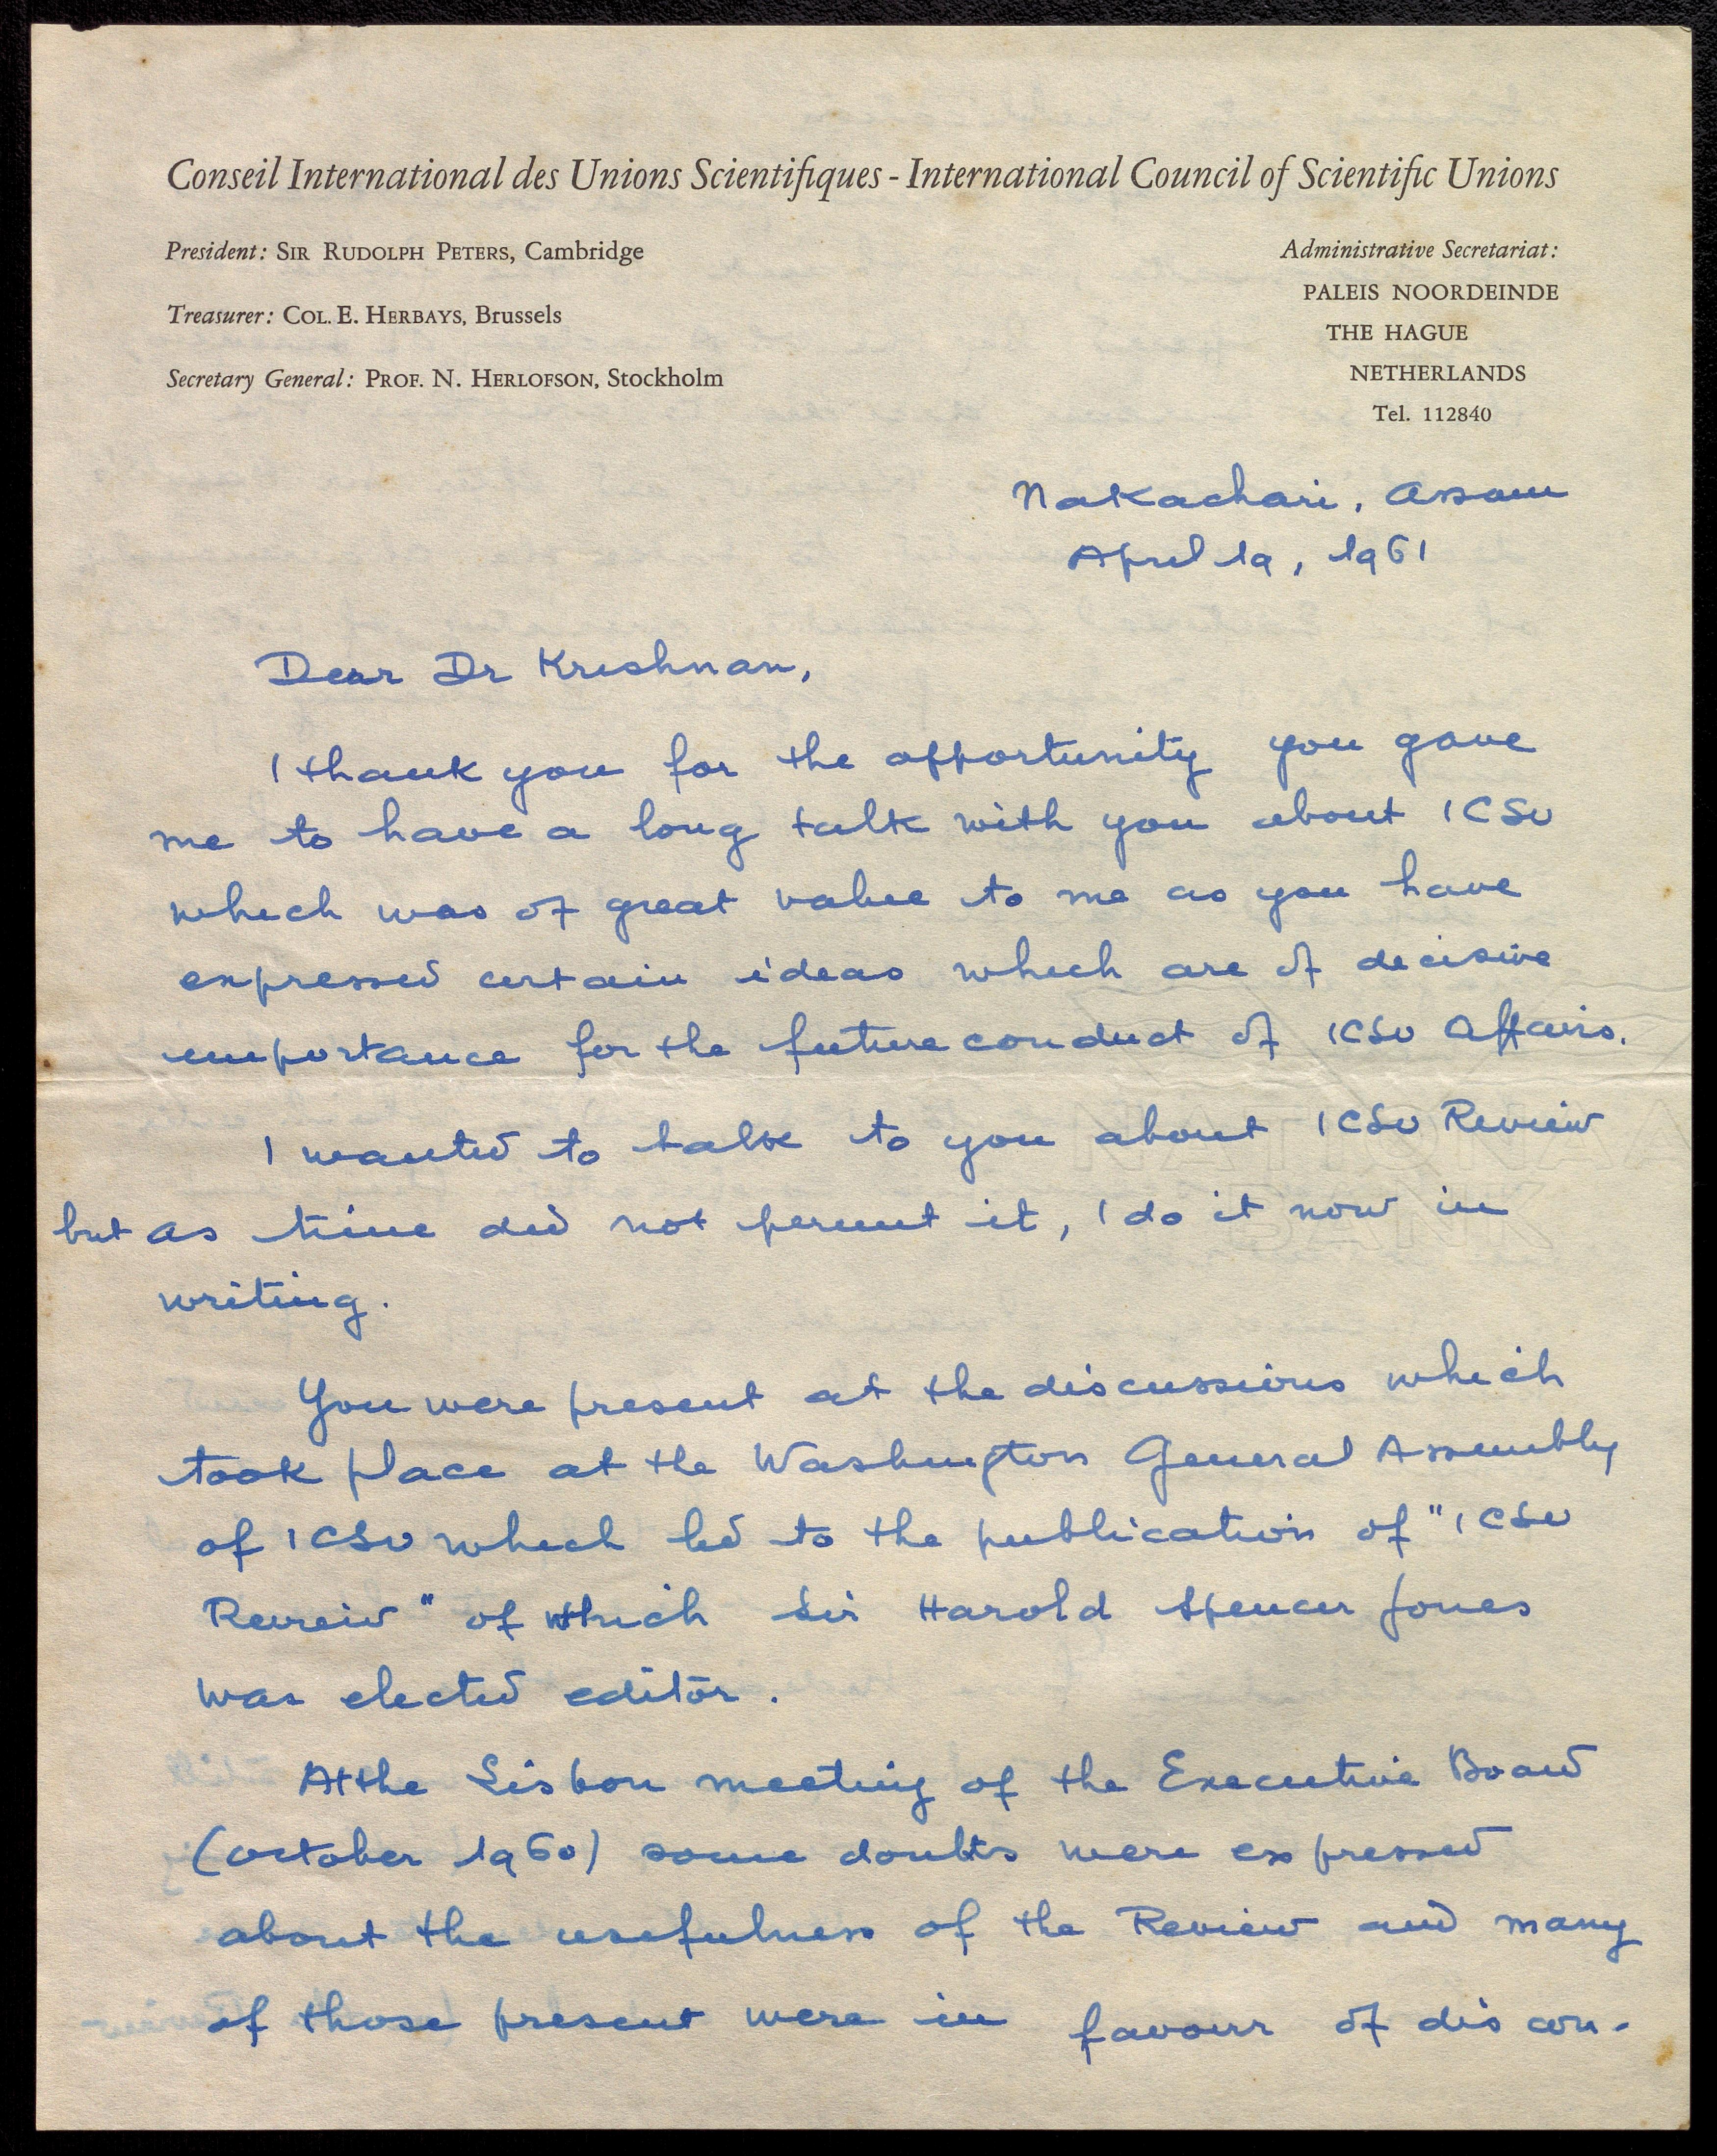 Conseil International des Unions Scientifiques - International Council of Scientific Unions
President: Sir Rudolph Peters, Cambridge
Treasurer: Col. E. Herbays, Brussels
Secretary General: Prof. N. Herlofson, Stockholm
Administrative Secretariat:
PALEIS NOORDEINDE
THE HAGUE
NETHERLANDS
Tel. 112840
Nakachari, Assam
April 19, 1961
Dear Dr Krishnan,
I thank you for the opportunity you gave
me to have a long talk with you about ICSU
which was of great value to me as you have
expressed certain ideas which are of decisive
importance for the future conduct of ICSU Affairs.
I wanted to talk to you about ICSU Review
but as time did not permit it, I do it now in
writing.
You were present at the discussions which
took place at the Washington General Assembly
of ICSU which led to the publication of "ICSU
Review" of which Sir Harold Spencer Jones
was elected editor.
At the Lisbon meeting of the Executive Board
(October 1960) some doubts were expressed
about the usefulness of the Review and many
of those present were in favour of discon-
NATIONAA
BANK